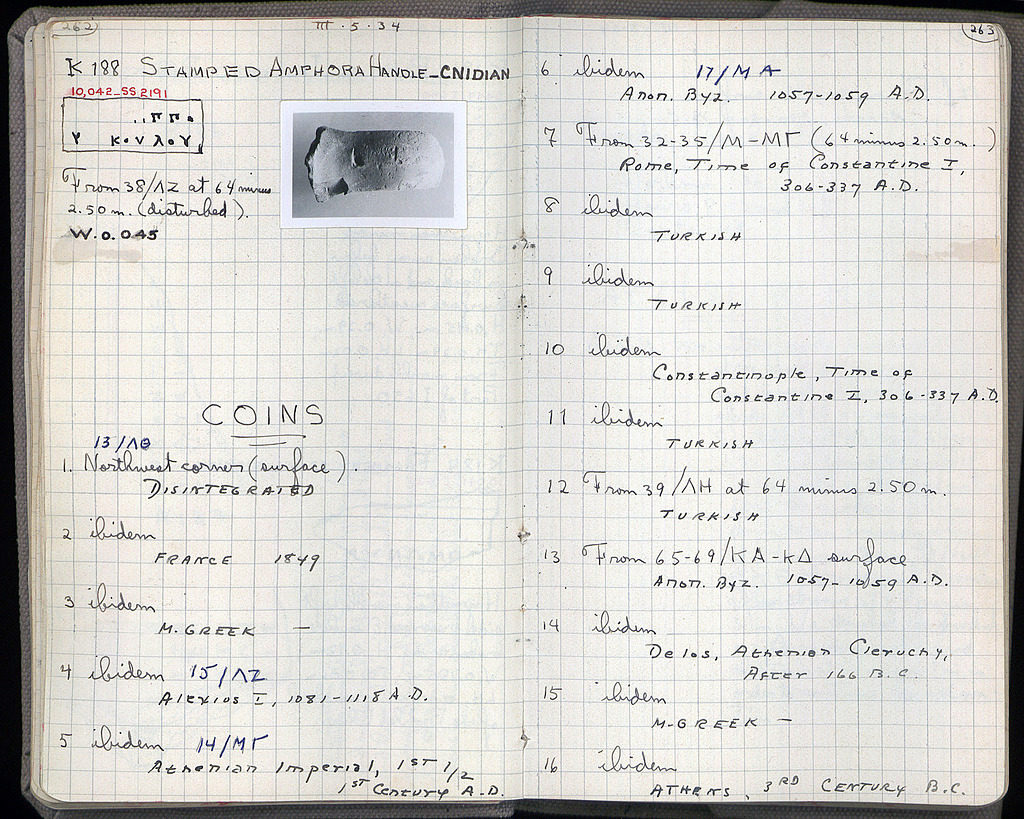 262
III · 5 · 34
K 188 STAMPED AMPHORA HANDLE - CNIDIAN
10,042 - SS 2191
..ΠΠο
Υ ΚΟΥΛΟΥ
From 38/ΛΖ at 64 minus
2.50 m. (disturbed).
W.0.045
COINS
13/ΛΘ
1. Northwest corner (surface).
DISINTEGRATED
2 ibidem
FRANCE 1849
3 ibidem
M. GREEK —
4 ibidem 15/ΛΖ
Alexios I, 1081-1118 A.D.
5 ibidem 14/ΜΓ
Athenian Imperial, 1ST 1/2
1ST Century A.D.
263
6 ibidem 17/ΜΑ
Anon. Byz. 1057-1059 A.D.
7 From 32-35/Μ-ΜΓ (64 minus 2.50 m.)
Rome, Time of Constantine I,
306-337 A.D.
8 ibidem
TURKISH
9 ibidem
TURKISH
10 ibidem
Constantinople, Time of
Constantine I, 306-337 A.D.
11 ibidem
TURKISH
12 From 39/ΛΗ at 64 minus 2.50 m.
TURKISH
13 From 65-69/ΚΑ-ΚΔ surface
Anon. Byz. 1057-1059 A.D.
14 ibidem
Delos, Athenian Cleruchy,
After 166 B.C.
15 ibidem
M-GREEK —
16 ibidem
ATHENS, 3RD CENTURY B.C.